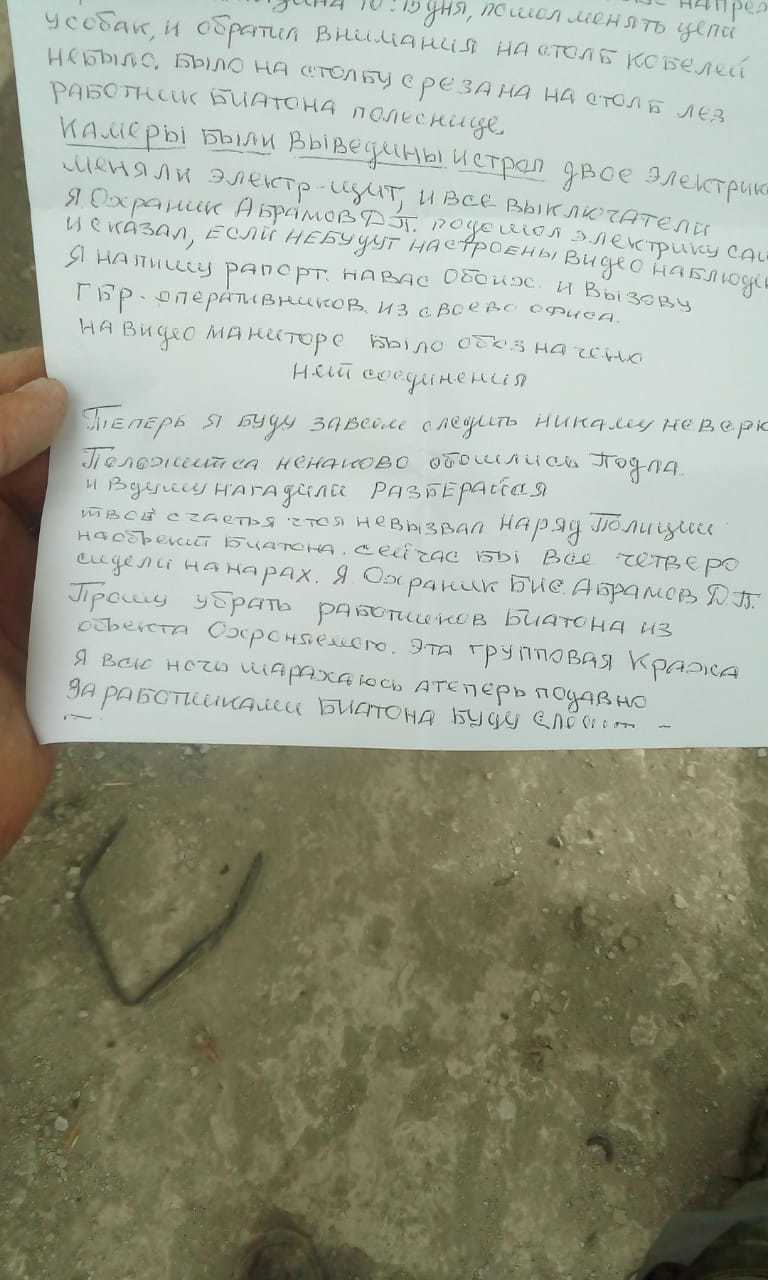 10:15 дня, пошол менять цепи
у собак, и обратил внимания на столб кобелей
небыло. было на столбу срезана на столб лез
работник Биатона полеснице.
Камеры были выведины истроя двое электрик
меняли электр-щит, и все выключатели
я Охраник Абрамов Д.П. подошол электрику
и сказал, если небудут настроены видео наблюд
я напишу рапорт. навас обоих. и вызову
ГБР-оперативников. из своево офиса.
на видео маниторе было обозначено
нет соединения
Теперь я буду завсем следить никаму неверю
Положится ненаково обошлись Подла.
и вдушу нагадили разберайся
твоё счастья что невызвал наряд Полиции
наобъект Биатона. сейчас бы все четверо
сидели на нарах. Я Охраник Абрамов Д.П.
Прошу убрать работников Биатона из
объекта Охроняемого. Эта групповая Кража
я всю ночь шарахаюсь атеперь подавно
за работниками Биатона буду